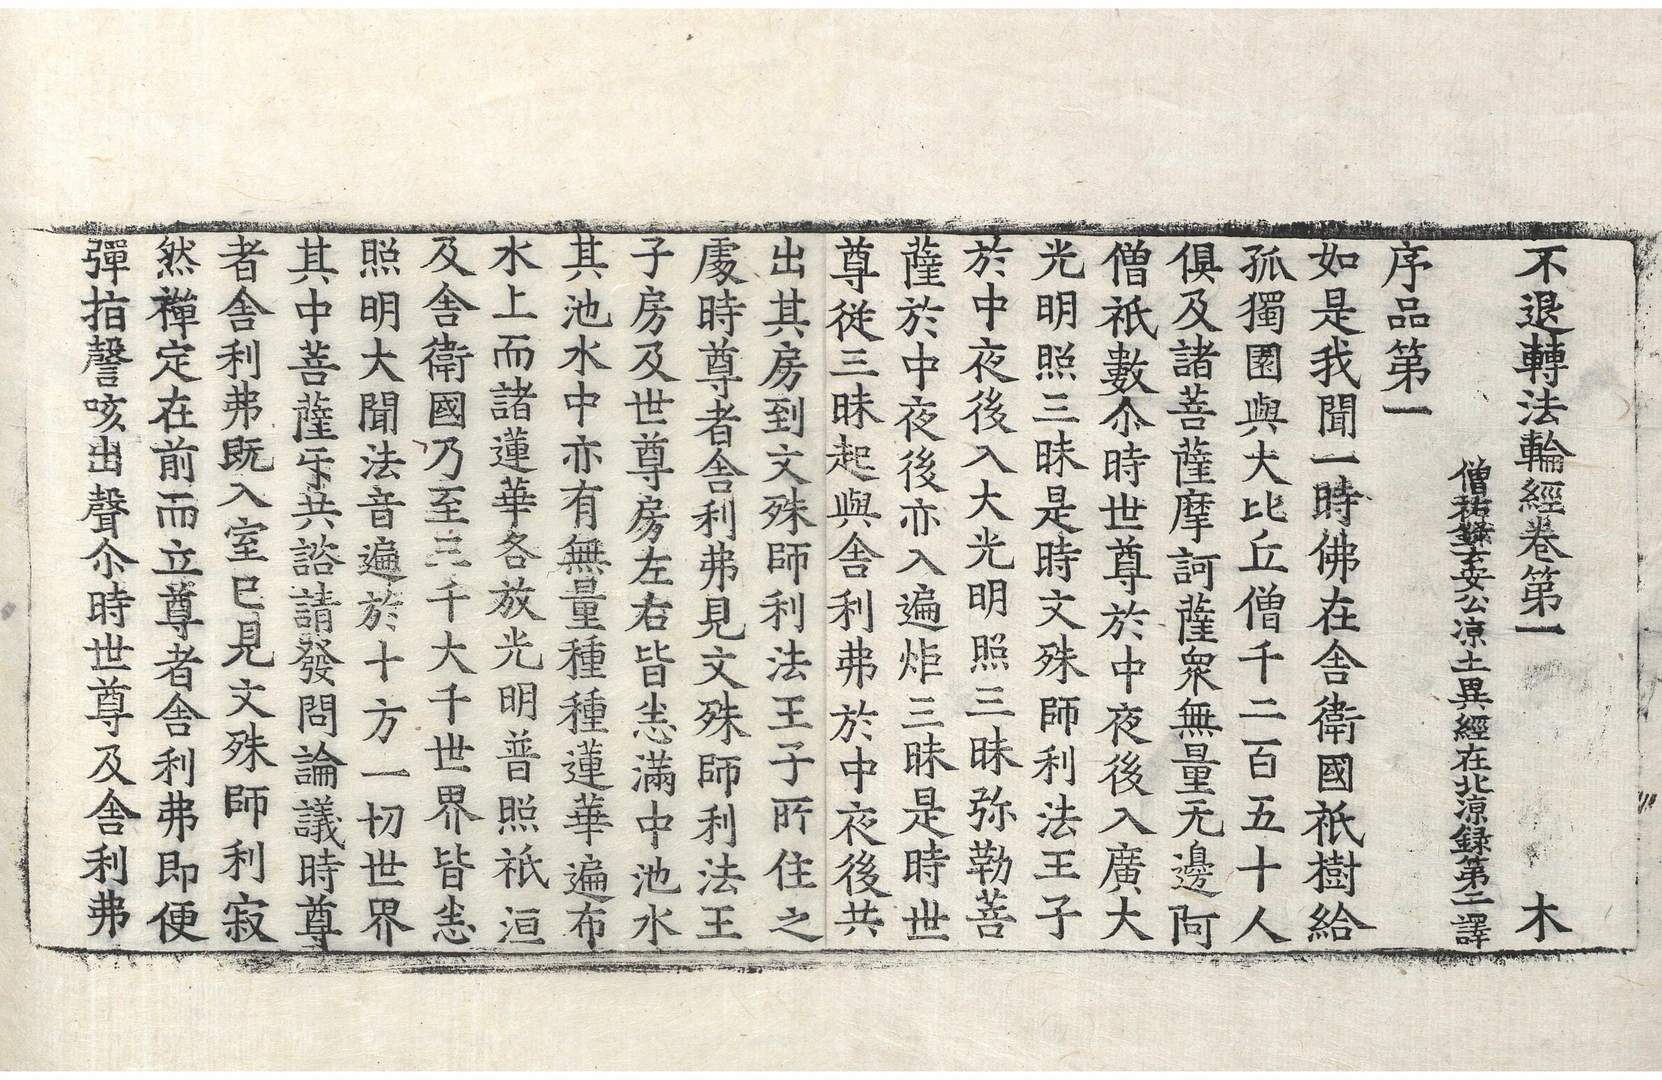 不退轉法輪經卷第一 木
僧祐錄云安公涼土異經在北涼録第二譯
序品第一
如是我聞一時佛在舍衛國祇樹給
孤獨園與大比丘僧千二百五十人
俱及諸菩薩摩訶薩衆無量无邊阿
僧祇數尒時世尊於中夜後入廣大
光明照三昧是時文殊師利法王子
於中夜後入大光明照三昧弥勒菩
薩於中夜後亦入遍炬三昧是時世
尊從三昧起與舍利弗於中夜後共
出其房到文殊師利法王子所住之
處時尊者舍利弗見文殊師利法王
子房及世尊房左右皆悉滿中池水
其池水中亦有無量種種蓮華遍布
水上而諸蓮華各放光明普照祇洹
及舍衛國乃至三千大千世界皆悉
照明大聞法音遍於十方一切世界
其中菩薩乐共諮請發問論議時尊
者舍利弗既入室已見文殊師利寂
然禪定在前而立尊者舍利弗即便
彈指謦咳出聲尒時世尊及舍利弗